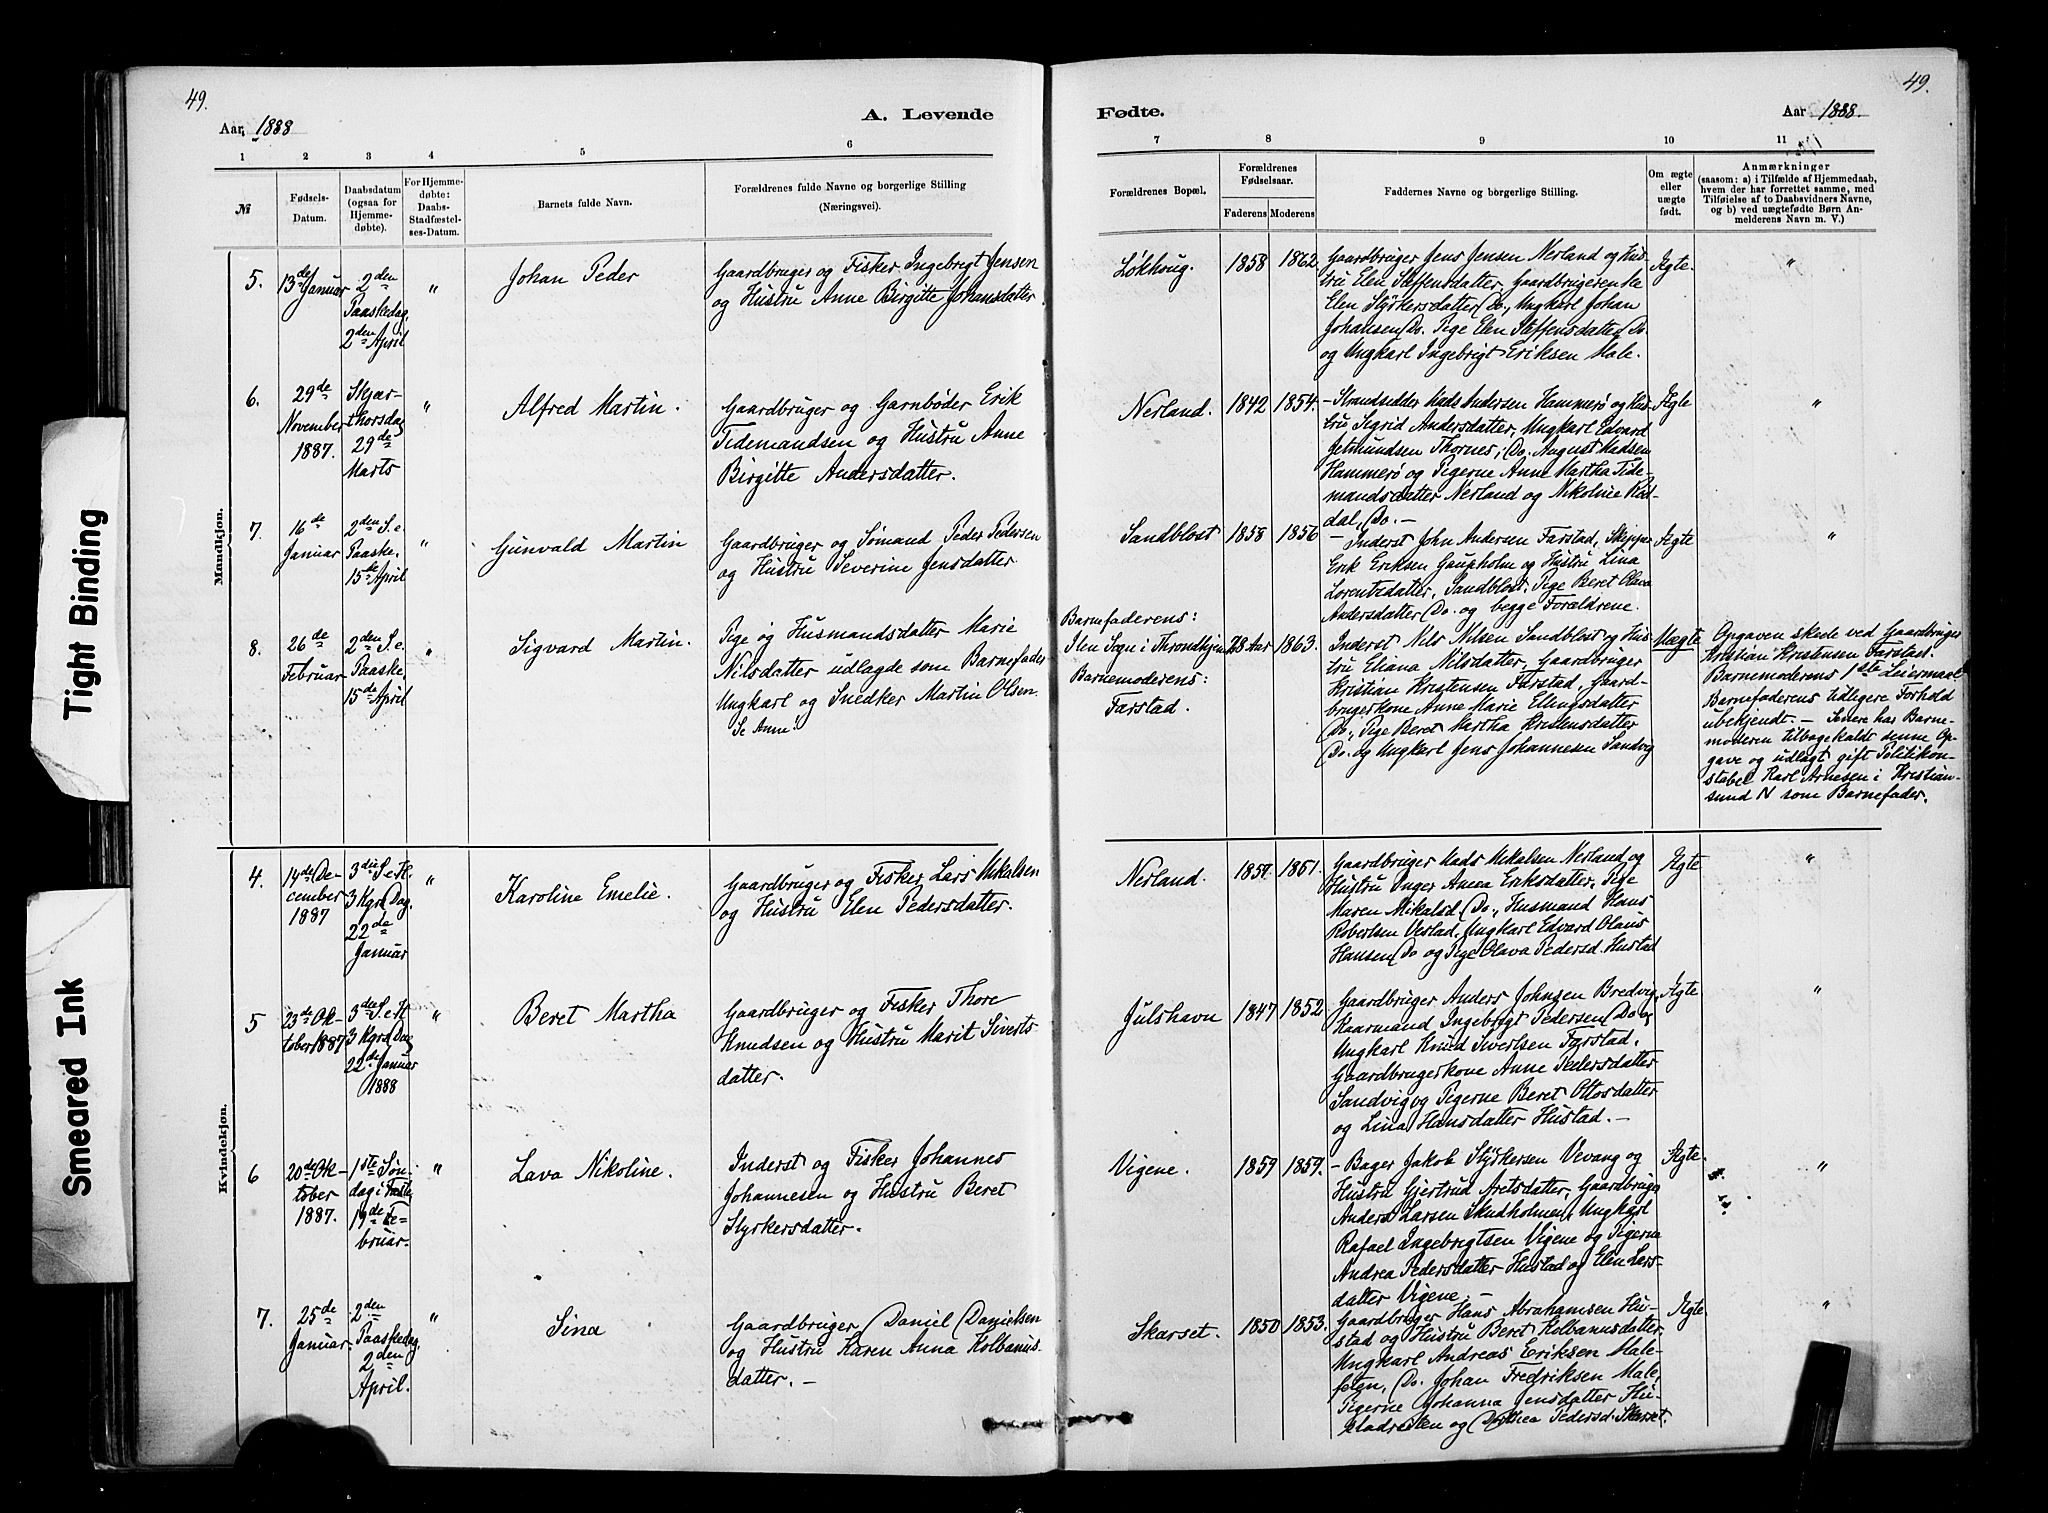 49.
49.
Aar, 1888
A. Levende
Fødte.
Aar 1888.
1 2 3 4 5 6
7 8 9 10 11
№
Fødsels-
Datum.
Daabsdatum
(ogsaa for
Hjemme-
døbte).
For Hjemme-
døbte:
Daabs-
Stadfæstel-
ses-Datum.
Barnets fulde Navn.
Forældrenes fulde Navne og borgerlige Stilling
(Næringsvei).
Forældrenes Bopæl.
Forældrenes
Fødselsaar.
Faderens Moderens
Faddernes Navne og borgerlige Stilling.
Om ægte
eller
uægte
født.
Anmærkninger
(saasom: a) i Tilfælde af Hjemmedaab,
hvem der har forrettet samme, med
Tilføielse af to Daabsvidners Navne,
og b) ved uægtefødte Børn An-
melderens Navn m. V.)
Mandkjøn.
5.
13de Januar
2den
Paaskedag,
2den April
"
Johan Peder
Gaardbruger og Fisker Ingebrigt Jensen
og Hustru Anne Birgitte Johansdatter
Løkhoug.
1858
1862.
Gaardbruger Jens Jensen Nerland og Hus-
tru Elen Steffensdatter, Gaardbrugerenke
Elen Styrkersdatter Do., Ungkarl Johan
Johansen Do. Pige Elen Steffensdatter Do
og Ungkarl Ingebrigt Eriksen Male.
Ægte.
"
6.
29de
November
1887.
Skjær-
thorsdag
29de
Marts
"
Alfred Martin.
Gaardbruger og Garnbøder Erik
Tidemandsen og Hustru Anne
Birgitte Andersdatter.
Nerland.
1842
1854.
- Strandsidder Mads Andersen Hammerø og Hus-
tru Sigrid Andersdatter, Ungkarl Edvard
Jetmundsen Thornes, Do. August Madsen
Hammerø og Pigerne Anne Martha Tide-
mandsdatter Nerland og Nikoline Rød-
dal, Do. -
Ægte
"
7.
16de
Januar
2den S. e.
Paaske.
15de April
"
Gunvald Martin
Gaardbruger og Sømand Peder Pedersen
og Hustru Severine Jensdatter
Sandblost
1858
1856
- Inderst John Andersen Farstad, Skipper
Erik Eriksen Gaupholm og Hustru Lina
Lorentzdatter, Sandblost, Pige Beret Olava
Andersdatter Do. og begge Forældrene.
Ægte
"
8.
26de
Februar
2den S. e.
Paaske,
15de April
"
Sigvard Martin.
Pige og Husmandsdatter Marie
Nilsdatter udlagde som Barnefader
Ungkarl og Snedker Martin Olsen.
Se Anm!
Barnefaderens:
Ilen Sogn i Throndhjem
Barnemoderens:
Farstad.
28 Aar
1863.
Inderst Nils Nilsen Sandblost og Hus-
tru Eliana Nilsdatter, Gaardbruger
Kristian Kristensen Farstad, Gaard-
brugerkone Anne Marie Ellingsdatter
Do., Pige Beret Martha Kristensdatter
Do. og Ungkarl Jens Johannesen Sandvig
Uægte
Opgaven skede ved Gaardbruger
Kristian Kristensen Farstad.
Barnemoderens 1ste Leiermaal
Barnefaderens tidligere Forhold
ubekjendt. - Senere har Barne-
moderen tilbagekaldt denne Op-
gave og udlagt gift Politikon-
stabel Karl Arnesen i Kristian-
sund N som Barnefader.
Kvindekjøn.
4.
14de De-
cember
1887
3die S. e. H.
3 Kgrs Dag.
22de
Januar
"
Karoline Emelie.
Gaardbruger og Fisker Lars Mikalsen
og Hustru Elen Pedersdatter.
Nerland.
1859.
1861.
Gaardbruger Mads Mikalsen Nerland og
Hustru Inger Anna Eriksdatter, Pige
Maren Mikalsd Do., Husmand Hans
Robertsen Vestad, Ungkarl Edvard Olaus
Hansen Do og Pige Olava Pedersd. Hustad
Ægte
"
5
23de Ok-
tober 1887
3die S. e. H
3 Kgrs Dag
22de Januar
1888
"
Beret Martha
Gaardbruger og Fisker Thore
Knudsen og Hustru Marit Siverts
datter.
Julshavn
1847
1852
Gaardbruger Anders Johnsen Bredvig,
Kaarmand Ingebrigt Pedersen Do og
Ungkarl Knud Sivertsen Farstad,
Gaardbrugerkone Anne Pedersdatter
Sandvig og Pigerne Beret Ottosdatter
og Lina Hansdatter Hustad. -
Ægte
"
6
20de Ok-
tober
1887.
1ste Søn-
dag i Faste
19de Fe-
bruar.
"
Lava Nikoline.
Inderst og Fisker Johannes
Johannesen og Hustru Beret
Styrkersdatter.
Vigene.
1859
1859.
- Bager Jakob Styrkersen Vevang og
Hustru Gjertrud Aretsdatter, Gaardbruger
Anders Larsen Skudholmen, Ungkarl
Rafael Ingebrigtsen Vigene og Pigerne
Andrea Pedersdatter Hustad og Elen Lars-
datter Vigene. -
Ægte.
"
7.
25de
Januar.
2den
Paaskedag,
2den
April.
"
Sina
Gaardbruger Daniel Danielsen
og Hustru Karen Anna Kolbanus-
datter. -
Skarset.
1850
1853.
Gaardbruger Hans Abrahamsen Hu-
stad og Hustru Beret Kolbanusdatter,
Ungkarl Andreas Eriksen Male-
fetgn, Do. Johan Fredriksen Male,
Pigerne Johanna Jensdatter Hu-
stadveien og Dorthea Pedersd. Skarset.
Ægte
"
Tight Binding
Smeared Ink